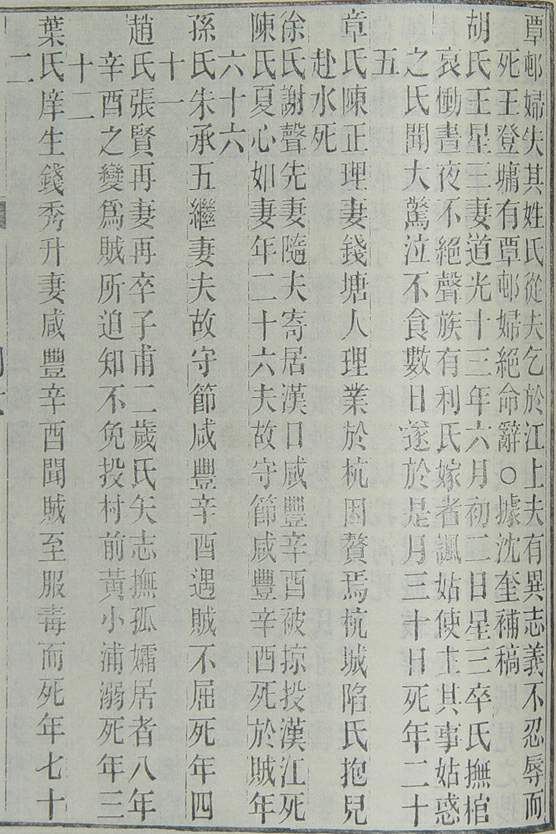 覃邨婦失其姓氏從夫乞於江上夫有異志義不忍辱而
死王登墉有覃邨婦絕命辭○據沈奎補稿
胡氏王星三妻道光十三年六月初二日星三卒氏撫棺
哀慟晝夜不絕聲族有利氏嫁者諷姑使主其事姑惑
之氏聞大驚泣不食數日遂於是月三十日死年二十
五
章氏陳正理妻錢塘人理業於杭因贅焉杭城陷氏抱兒
赴水死
徐氏謝聲先妻隨夫寄居漢口咸豐辛酉被掠投漢江死
陳氏夏心如妻年二十六夫故守節咸豐辛酉死於賊年
六十六
孫氏朱承五繼妻夫故守節咸豐辛酉遇賊不屈死年四
十一
趙氏張賢再妻再卒子甫二歲氏矢志撫孤孀居者八年
辛酉之變爲賊所迫知不免投村前黃小浦溺死年三
十二
葉氏庠生錢秀升妻咸豐辛酉聞賊至服毒而死年七十
二